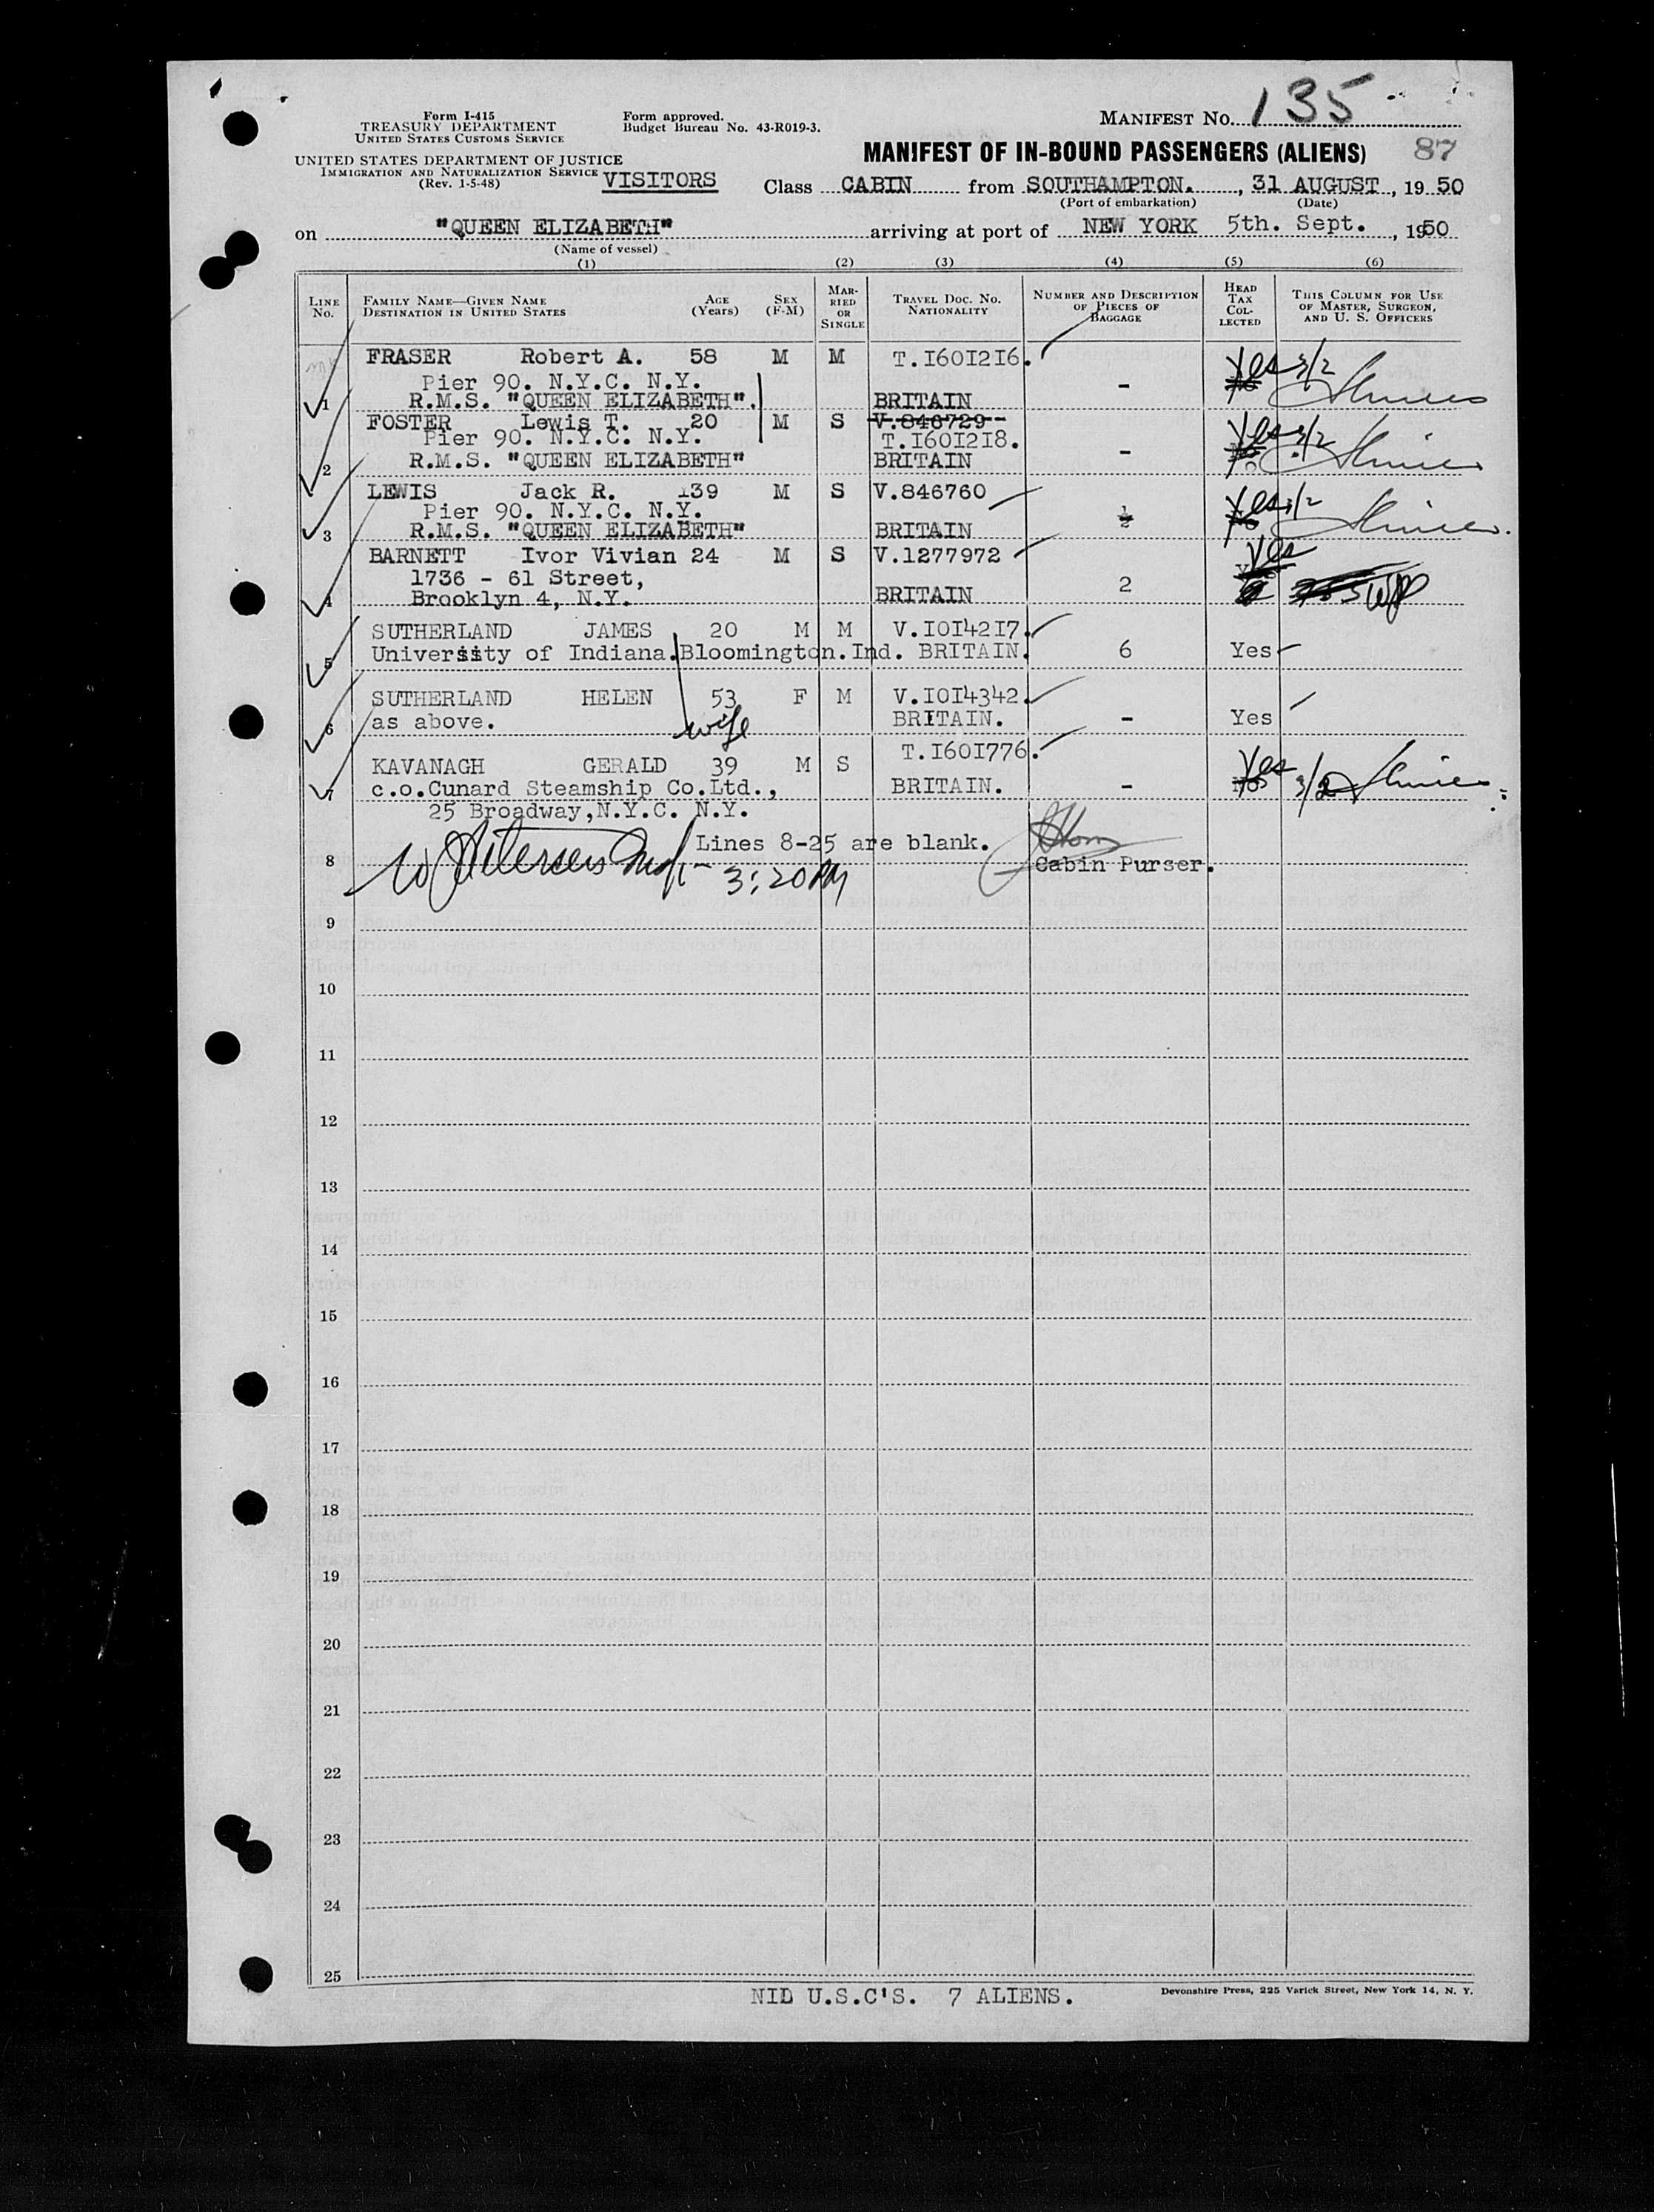 Form I-415
TREASURY DEPARTMENT
UNITED STATES CUSTOMS SERVICE
Form approved.
Budget Bureau No. 43-R019-3.
MANIFEST NO. 135
UNITED STATES DEPARTMENT OF JUSTICE
IMMIGRATION AND NATURALIZATION SERVICE
(Rev. 1-5-48)
VISITORS
MANIFEST OF IN-BOUND PASSENGERS (ALIENS) 87
Class CABIN from SOUTHAMPTON. , 31 AUGUST , 19 50
(Port of embarkation) (Date)
on "QUEEN ELIZABETH" arriving at port of NEW YORK 5th. Sept. , 1950
(Name of vessel)
(1) (2) (3) (4) (5) (6)
LINE NO.
FAMILY NAME—GIVEN NAME
DESTINATION IN UNITED STATES
AGE (Years)
SEX (F-M)
MARRIED OR SINGLE
TRAVEL DOC. NO.
NATIONALITY
NUMBER AND DESCRIPTION OF PIECES OF BAGGAGE
HEAD TAX COLLECTED
THIS COLUMN FOR USE OF MASTER, SURGEON, AND U. S. OFFICERS
FRASER Robert A. 58 M M T.I60I2I6. Yes 3/2
Pier 90. N.Y.C. N.Y. -
1 R.M.S. "QUEEN ELIZABETH". BRITAIN
FOSTER Lewis T. 20 M S V.846729 Yes 3/2
Pier 90. N.Y.C. N.Y. T.I60I2I8.
2 R.M.S. "QUEEN ELIZABETH" BRITAIN -
LEWIS Jack R. 139 M S V.846760 Yes 3/2
Pier 90. N.Y.C. N.Y.
3 R.M.S. "QUEEN ELIZABETH" BRITAIN
BARNETT Ivor Vivian 24 M S V.1277972 Yes
1736 - 61 Street, 2
4 Brooklyn 4, N.Y. BRITAIN
SUTHERLAND JAMES 20 M M V.IOI42I7.
5 University of Indiana. Bloomington. Ind. BRITAIN. 6 Yes
SUTHERLAND HELEN 53 F M V.IOI4342.
6 as above. wife BRITAIN. - Yes
T.I60I776.
KAVANAGH GERALD 39 M S Yes 3/2
7 c.o.Cunard Steamship Co.Ltd., BRITAIN. -
25 Broadway,N.Y.C. N.Y.
Lines 8-25 are blank.
8 3:20 PM Cabin Purser.
9
10
11
12
13
14
15
16
17
18
19
20
21
22
23
24
25
NIL U.S.C'S. 7 ALIENS.
Devonshire Press, 225 Varick Street, New York 14, N. Y.